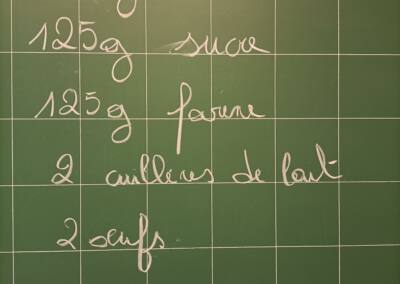 125g sucre
125g farine
2 cuillères de lait
2 oeufs